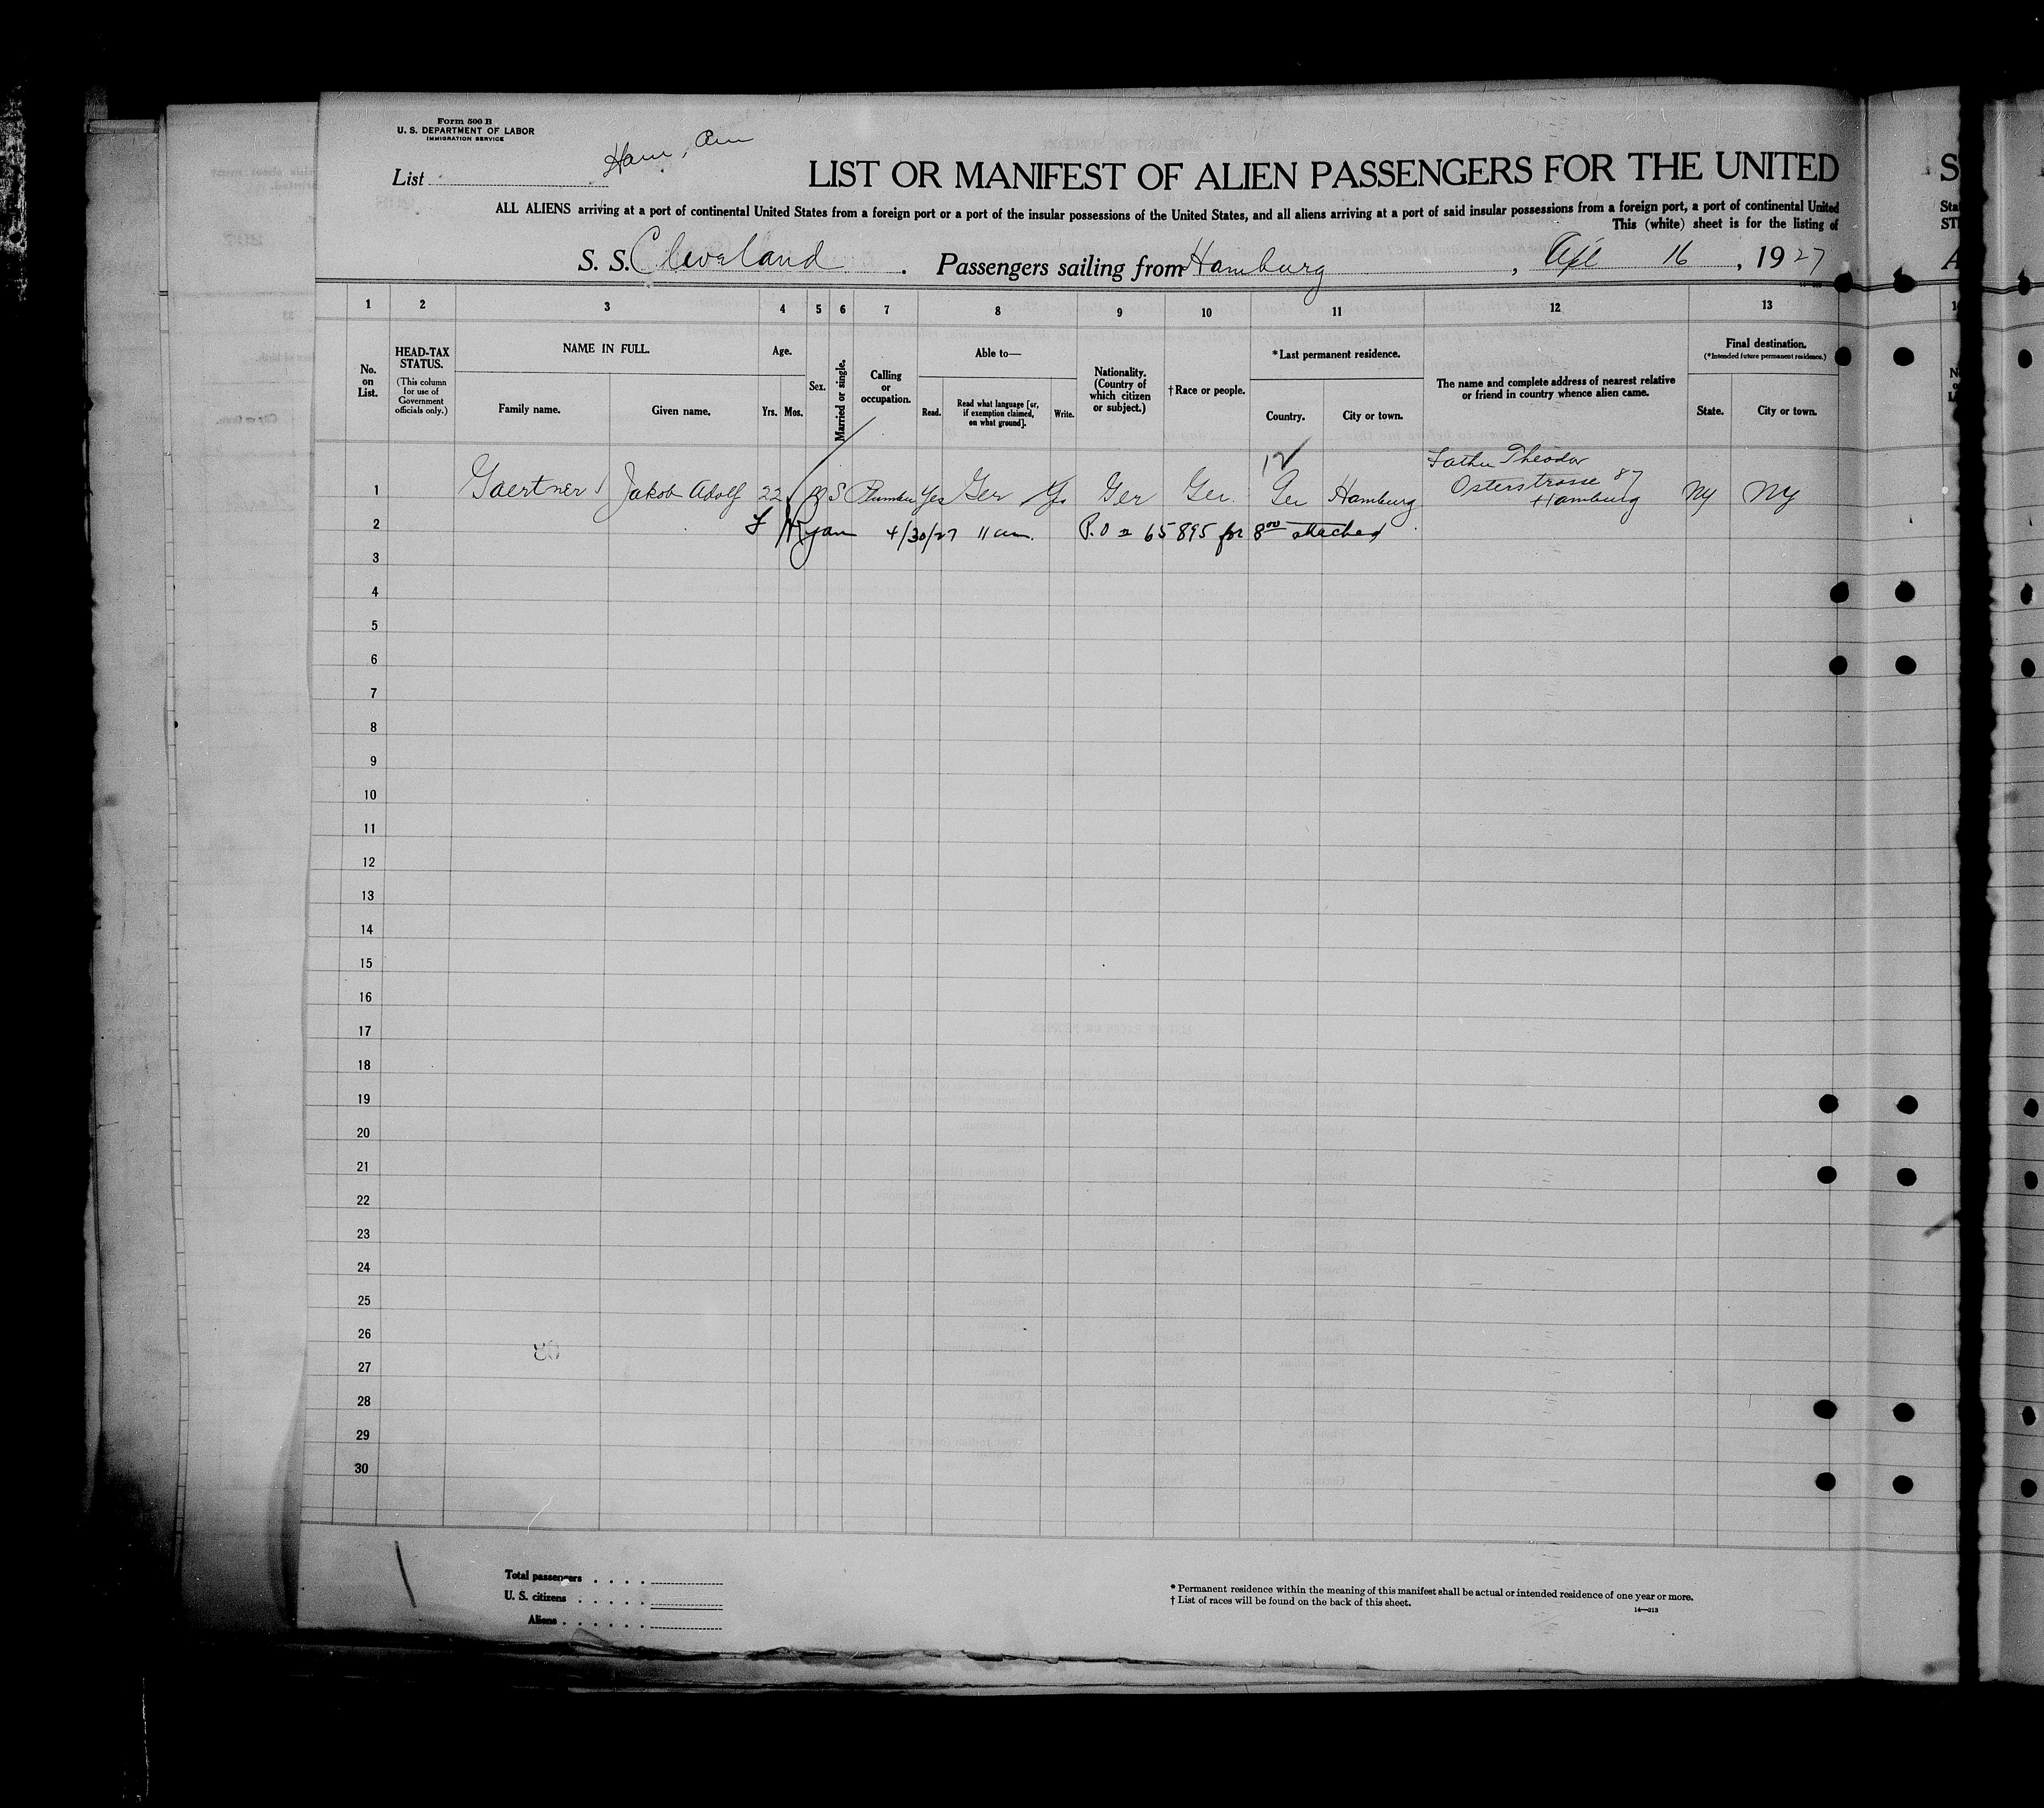 Form 500 B
U. S. DEPARTMENT OF LABOR
IMMIGRATION SERVICE
List
Ham, Am
LIST OR MANIFEST OF ALIEN PASSENGERS FOR THE UNITED
ALL ALIENS arriving at a port of continental United States from a foreign port or a port of the insular possessions of the United States, and all aliens arriving at a port of said insular possessions from a foreign port, a port of continental United
This (white) sheet is for the listing of
S. S. Cleveland . Passengers sailing from Hamburg , Apl 16 , 1927
1 2 3 4 5 6 7 8 9 10 11 12 13
No. on List.
HEAD-TAX STATUS.
(This column for use of Government officials only.)
NAME IN FULL.
Family name. Given name.
Age.
Yrs. Mos.
Sex.
Married or single.
Calling or occupation.
Able to—
Read. Read what language [or, if exemption claimed, on what ground]. Write.
Nationality. (Country of which citizen or subject.)
†Race or people.
*Last permanent residence.
Country. City or town.
The name and complete address of nearest relative or friend in country whence alien came.
Final destination.
(*Intended future permanent residence.)
State. City or town.
Father Theodor
1 Gaertner Jakob Adolf 22 M S Plumber Yes Ger Ys Ger Ger Ger Hamburg Osterstrasse 87 Hamburg NY NY
2 Ryan 4/30/27 11 am. 65895 for 8⁰⁰ attached
3
4
5
6
7
8
9
10
11
12
13
14
15
16
17
18
19
20
21
22
23
24
25
26
27
28
29
30
Total passengers . . . .
U. S. citizens . . . . .
Aliens . . . . . .
* Permanent residence within the meaning of this manifest shall be actual or intended residence of one year or more.
† List of races will be found on the back of this sheet.
14—213